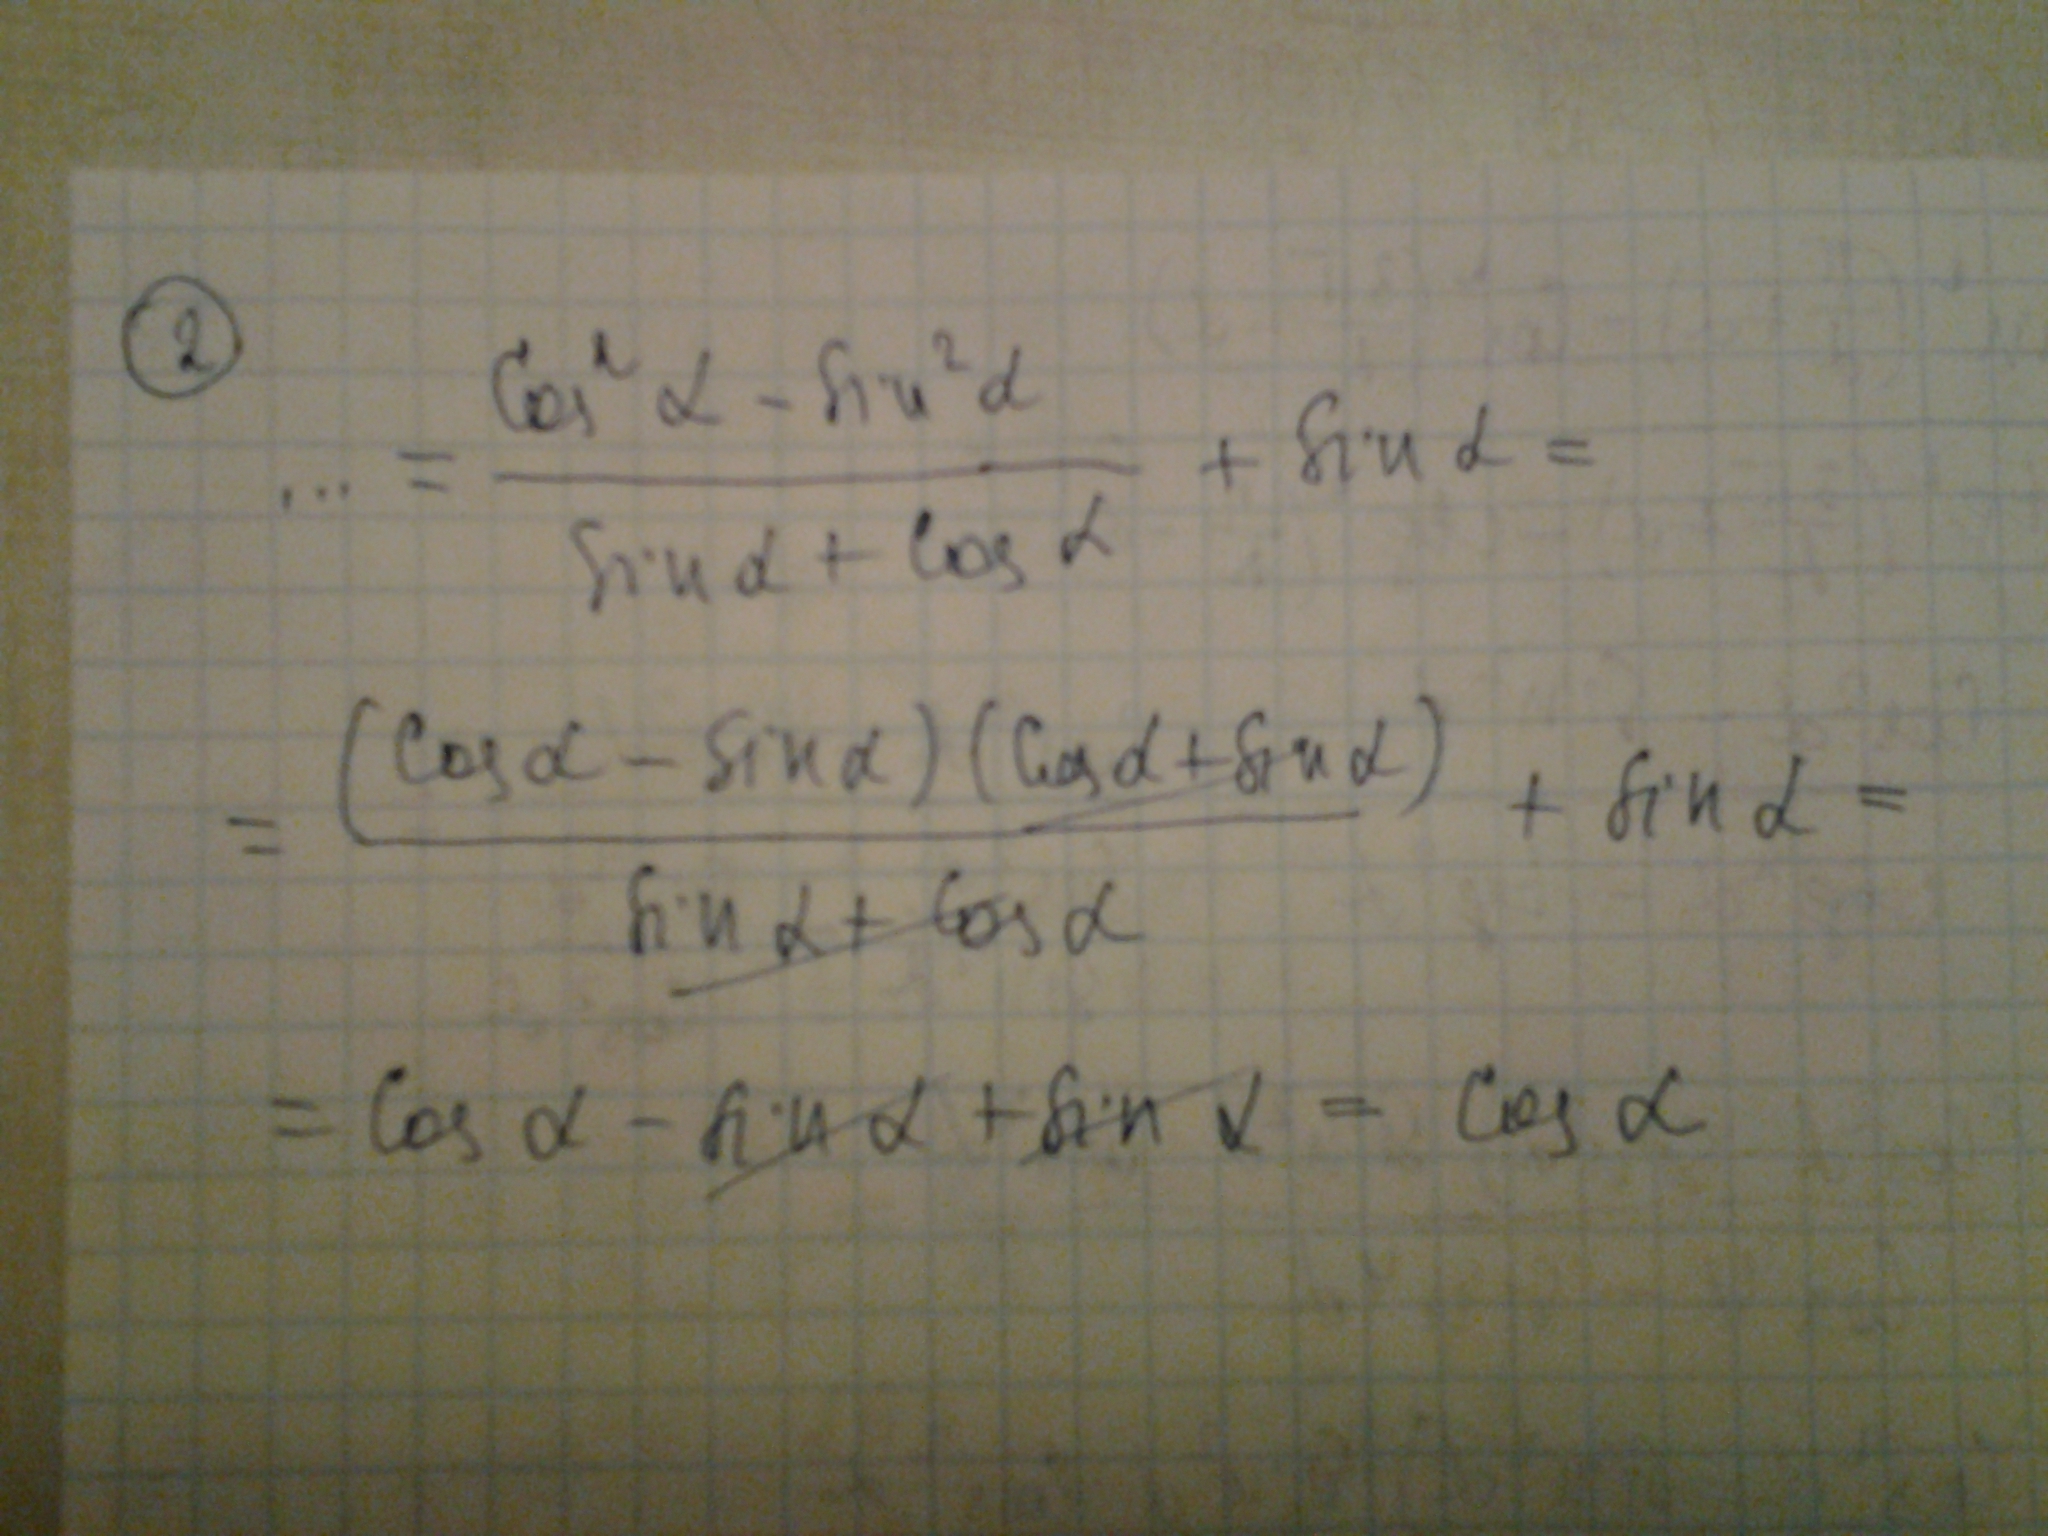 ②
... = (cos² α - sin² α) / (sin α + cos α) + sin α =
= (cos α - sin α)(cos α + sin α) / (sin α + cos α) + sin α =
= cos α - sin α + sin α = cos α